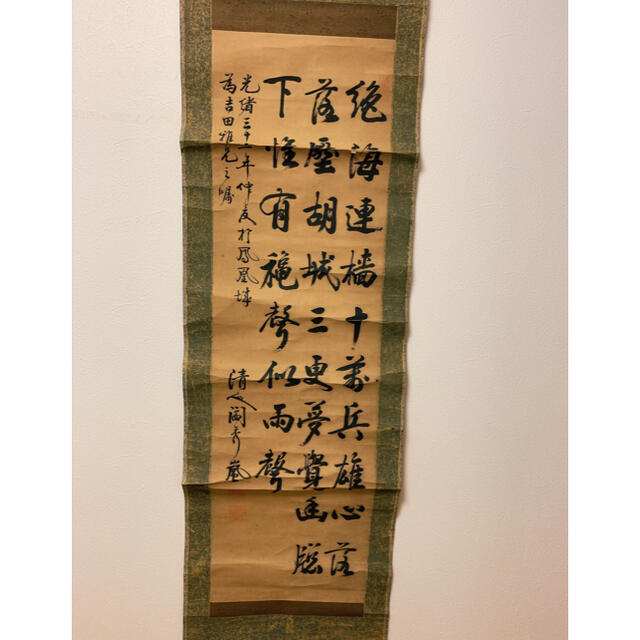 絶海連檣十萬兵雄心落
落壓胡城三更夢覺幽牕
下惟有穐聲似雨聲
光緒三十年仲夏於鳳凰城
為吉田雅兄之囑
清人閻秀嵐